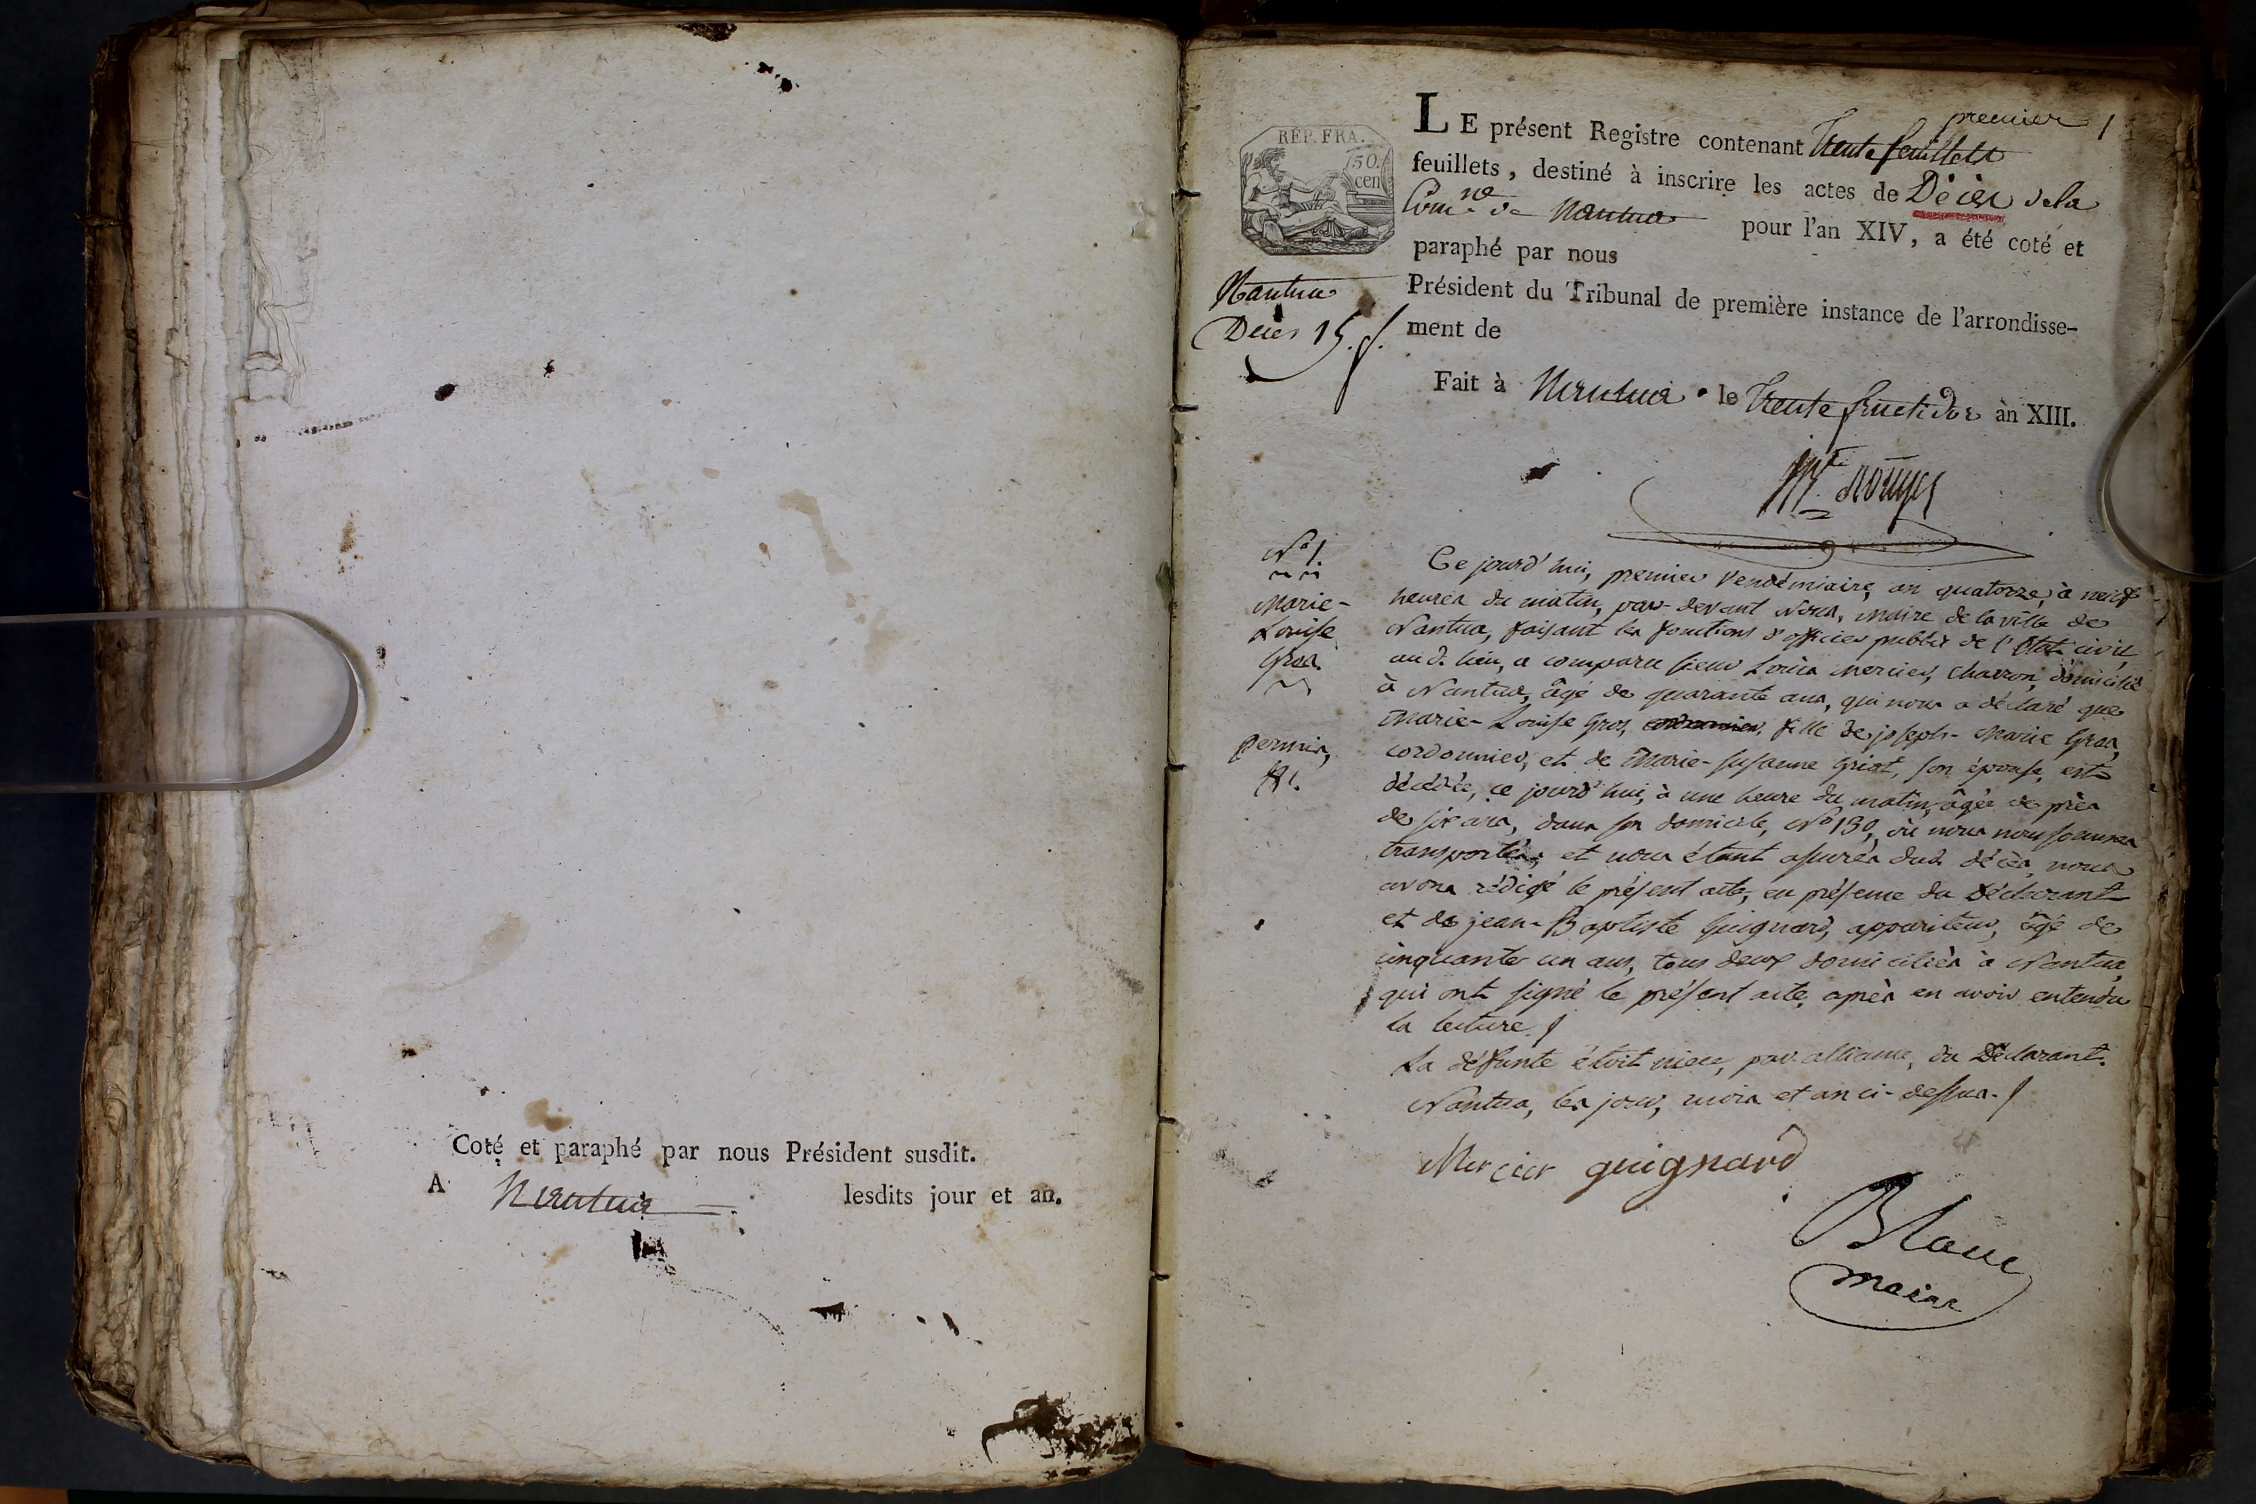 Coté et paraphé par nous Président susdit.
A Nantua lesdits jour et an.
premier 1
RÉP. FRA.
50.
cen
LE présent Registre contenant trente feuillets
feuillets, destiné à inscrire les actes de Décès de la
Com.ne de Nantua pour l'an XIV, a été coté et
paraphé par nous
Président du Tribunal de première instance de l'arrondisse-
ment de
Nantua
Décès 15.
Fait à Nantua le trente fructidor an XIII.
N.o 1.
Marie-
Louise
Gros.
permis,
Ce jourd'hui, premier Vendémiaire, an quatorze, à neuf
heures du matin, par-devant Nous, Maire de la ville de
Nantua, faisant les fonctions d'officier public de l'Etat civil
aud. lieu, a comparu sieur Louis Mercier, Charron, domicilié
à Nantua, âgé de quarante ans, qui nous a déclaré que
Marie-Louise Gros, cordonnier, fille de joseph-Marie Gros,
cordonnier, et de Marie-susanne Griot, son épouse, est
décédée, ce jourd'hui, à une heure du matin, âgée de près
de six ans, dans son domicile, N.o 130, où nous nous sommes
transportés; et nous étant assurés dud. décès, nous
avons rédigé le présent acte, en présence du déclarant
et de jean-Baptiste Guignard, appariteur, âgé de
cinquante un ans, tous deux domiciliés à Nantua,
qui ont signé le présent acte, après en avoir entendu
la lecture.
La défunte étoit nièce, par alliance, du Déclarant.
Nantua, les jour, mois et an ci-dessus.
Mercier guignard
Blanc
maire